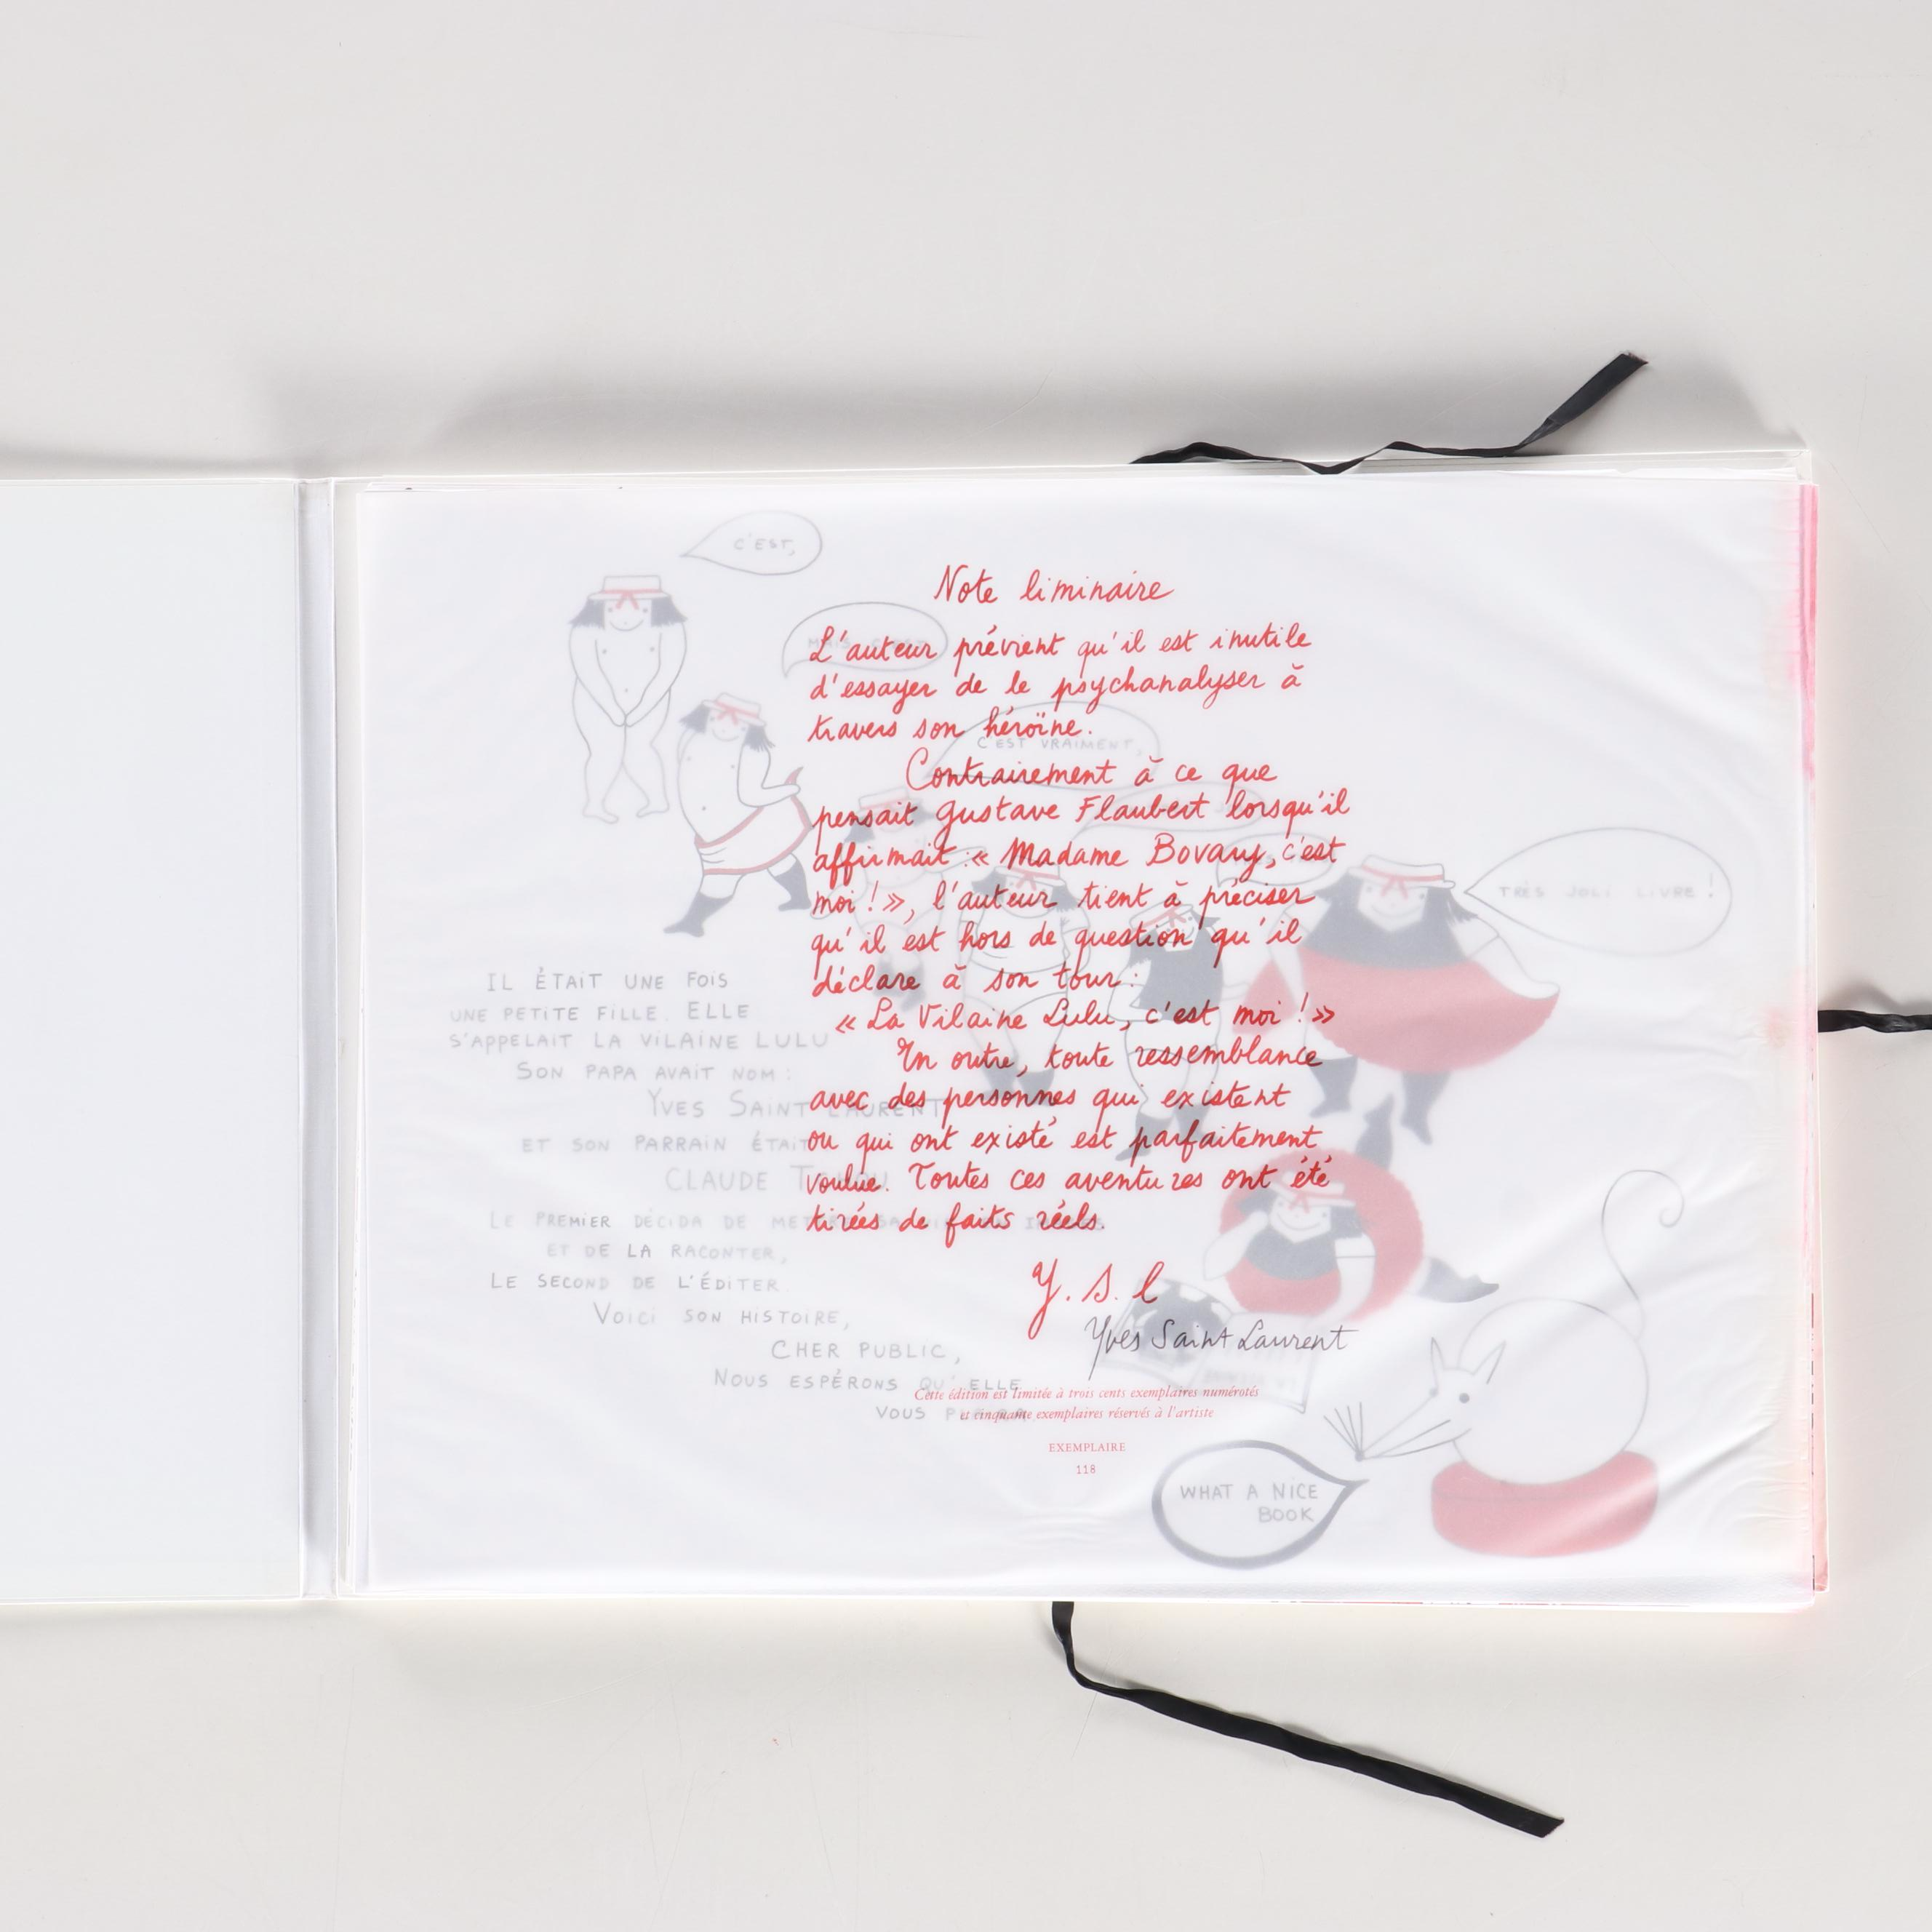 Note liminaire
L'auteur prévient qu'il est inutile
d'essayer de le psychanalyser à
travers son héroïne.
Contrairement à ce que
pensait Gustave Flaubert lorsqu'il
affirmait : « Madame Bovary, c'est
moi ! », l'auteur tient à préciser
qu'il est hors de question qu'il
déclare à son tour :
« La Vilaine Lulu, c'est moi ! »
En outre, toute ressemblance
avec des personnes qui existent
ou qui ont existé est parfaitement
voulue. Toutes ces aventures ont été
tirées de faits réels.
Y. S. L
Yves Saint Laurent
Cette édition est limitée à trois cents exemplaires numérotés
et cinquante exemplaires réservés à l'artiste
EXEMPLAIRE
118
C'EST,
MAIS
C'EST VRAIMENT,
TRÈS JOLI LIVRE !
IL ÉTAIT UNE FOIS
UNE PETITE FILLE. ELLE
S'APPELAIT LA VILAINE LULU
SON PAPA AVAIT NOM :
YVES SAINT LAURENT
ET SON PARRAIN ÉTAIT
CLAUDE
LE PREMIER DÉCIDA DE
ET DE LA RACONTER,
LE SECOND DE L'ÉDITER.
VOICI SON HISTOIRE,
CHER PUBLIC,
NOUS ESPÉRONS QU'ELLE
VOUS
WHAT A NICE
BOOK